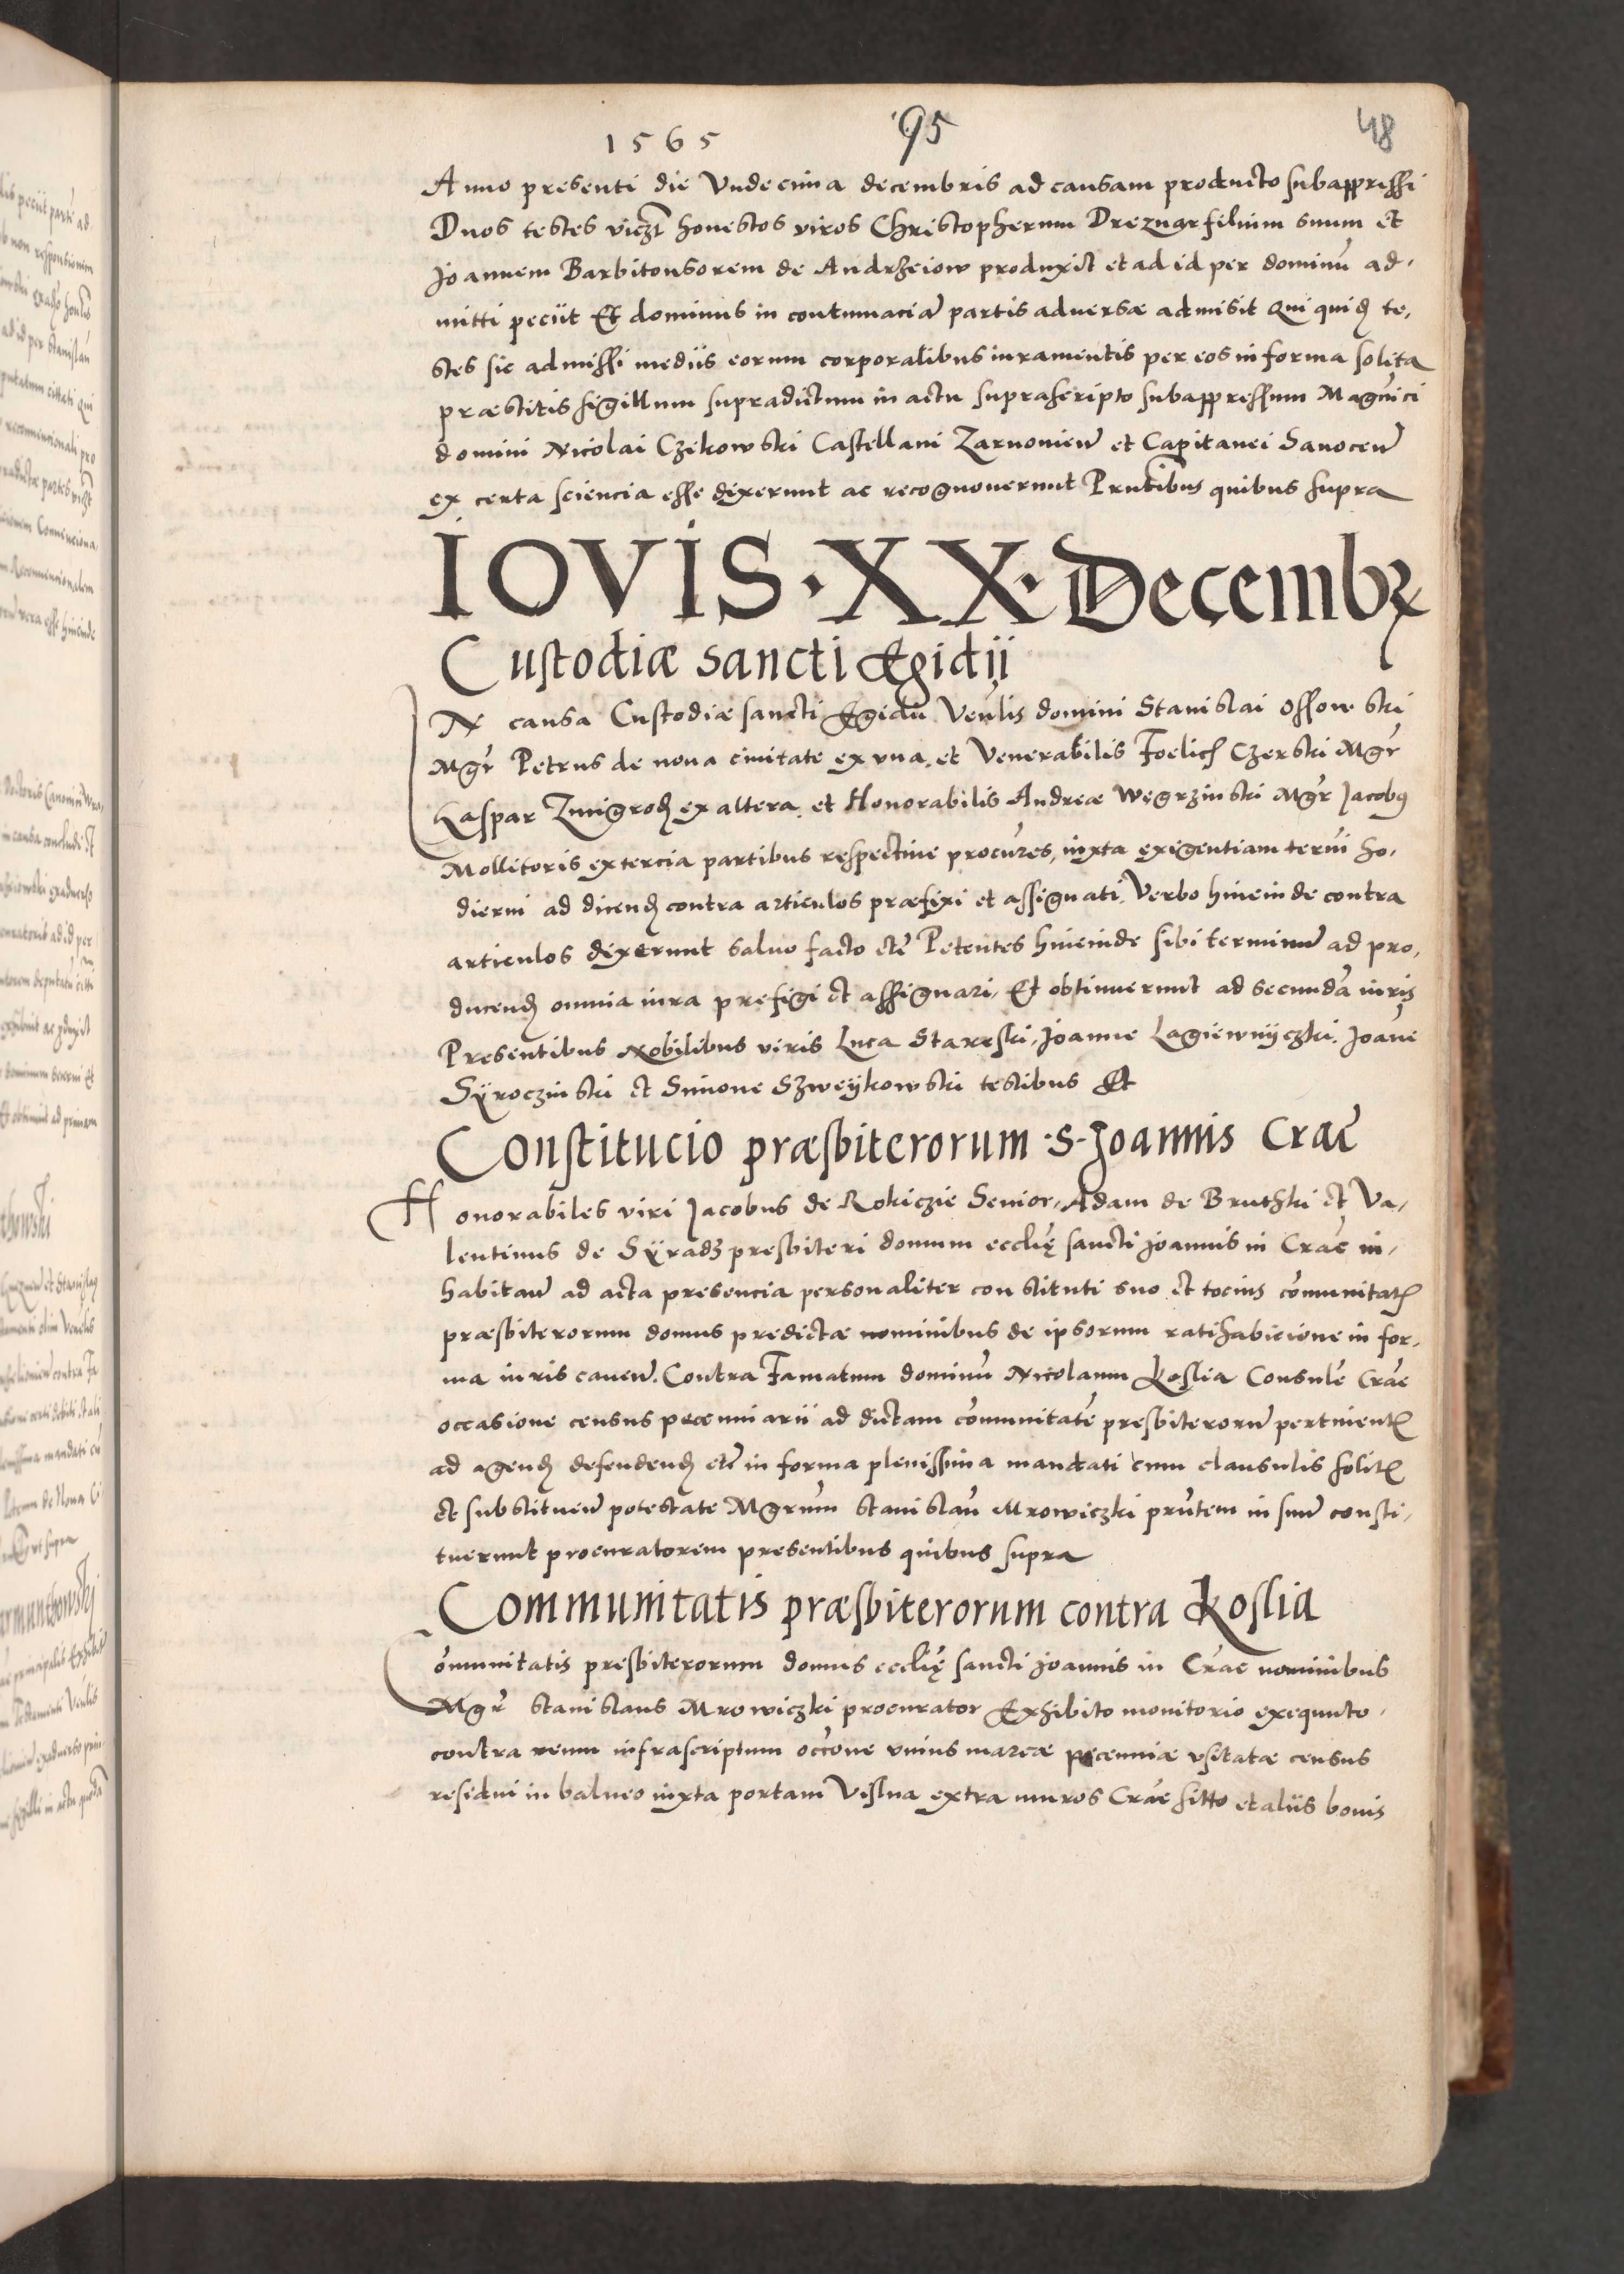 1565 95 48
Anno presenti die Undecima decembris ad causam producto subappressi
Duos testes viczt honestos viros Christopherum Dreznar filium suum et
Joannem Barbitonsorem de Andrzeiow produxit et ad id per dominū ad,
mitti peciit Et dominus in contumaciā partis adversæ admisit Qui quid te,
stes sic admissi mediis eorum corporalibus iuramentis per eos in forma solita
præstitis sigillum supradictum in actu suprascripto subappressum Magnici
domini Nicolai Czikowski Castellani Zarnovien et Capitanei Sanocen
ex certa sciencia esse dixerunt ac recognoverunt Prntibus quibus supra
IOVIS · XX · Decembr
Custodiæ sancti Egidij
IN causa Custodiæ sancti Egidii Venlis domini Stanislai Ossowski
Mgr Petrus de nova civitate ex una, et Venerabilis Foelic Czerski Mgr
Caspar Zmigrod ex altera, et Honorabilis Andreæ Węgrzinski Mgr Jacobus
Mollitoris ex tercia partibus respective procures, iuxta exigentiam termi ho,
dierni ad dicend contra articulos præfixi et assignati, Verbo hincinde contra
articulos dixerunt salvo facto etc Petentes hincinde sibi terminū ad pro,
ducend omnia iura prefigi et assignari, Et obtinuerunt ad secundā iuris
Presentibus Nobilibus viris Luca Starrski, Joanne Lagiewnyczki, Joane
Syroczinski et Simone Szweykowski testibus Et
Constitucio præsbiterorum · S · Joannis Crac
Honorabiles viri Jacobus de Rokiczie Senior, Adam de Bruthki et Va,
lentinus de Syradz presbiteri domum ecclię sancti Joannis in Crac in,
habitan ad acta presencia personaliter constituti suo et tocius comunitat
præsbiterorum domus predictæ nominibus de ipsorum ratihabicione in for,
ma iuris caven, Contra Famatum dominū Nicolaum Koslia Consulē Crac
occasione census pecuniarii ad dictam comunitatē presbiterorū pertinent
ad agend defendend etc in forma plenissima mandati cum clausulis solit
et substituen potestate Mgrum Stanislaū Mrowiczki prntem in suū consti,
tuerunt procuratorem presentibus quibus supra
Communitatis præsbiterorum contra Koslia
Comunitatis presbiterorum domus ecclię sancti Joannis in Crac nominibus
Mgr Stanislaus Mrowiczki procurator Exhibito monitorio exequuto,
contra reum infrascriptum occone unius marcæ pecuniæ usitatæ census
residui in balneo iuxta portam Vislna extra muros Crac sitto et aliis bonis